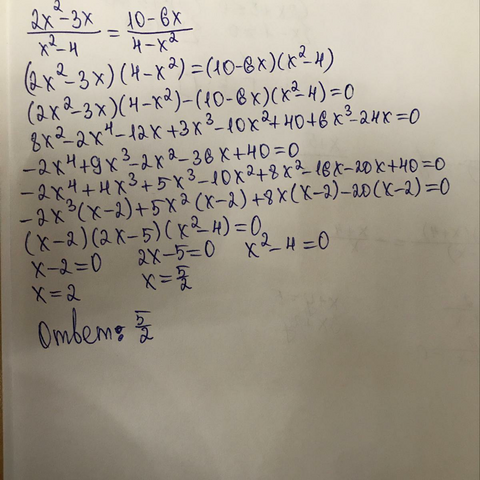 (2x²-3x)/(x²-4) = (10-6x)/(4-x²)
(2x²-3x)(4-x²)=(10-6x)(x²-4)
(2x²-3x)(4-x²)-(10-6x)(x²-4)=0
8x²-2x⁴-12x+3x³-10x²+40+6x³-24x=0
-2x⁴+9x³-2x²-36x+40=0
-2x⁴+4x³+5x³-10x²+8x²-16x-20x+40=0
-2x³(x-2)+5x²(x-2)+8x(x-2)-20(x-2)=0
(x-2)(2x-5)(x²-4)=0
x-2=0 2x-5=0 x²-4=0
x=2 x=5/2
Ответ: 5/2